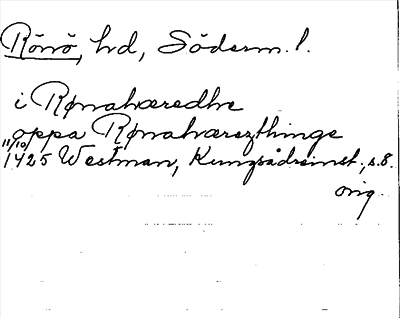 Rönö, hd, Söderm. l.
i Rønahæredhe
oppa Rønahæræzthinge
11/10
1425 Westman, Kungsådrainst., s. 8.
orig.